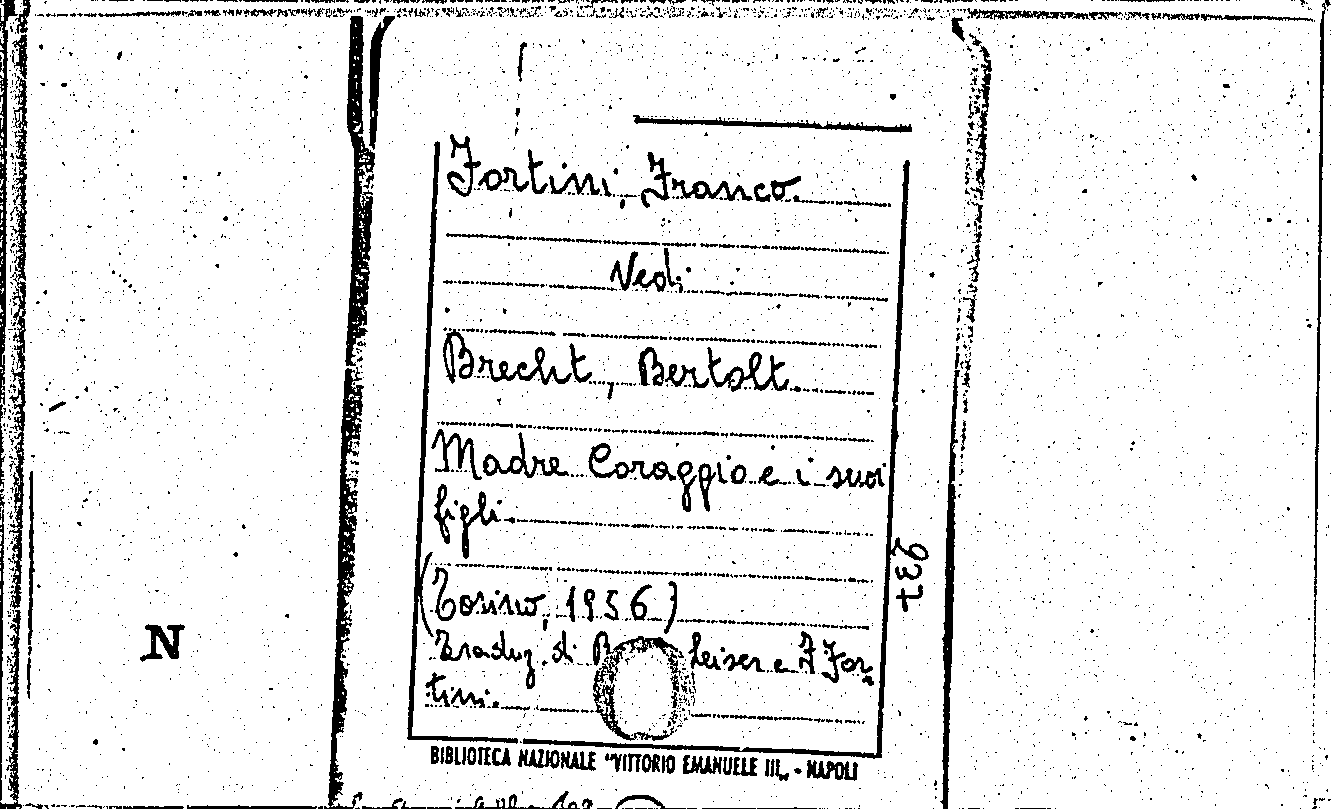 Fortini, Franco.
Vedi
Brecht, Bertolt.
Madre Coraggio e i suoi
figli.
(Torino, 1956)
Traduz. di Leiser e F For-
tini.
237
N
BIBLIOTECA NAZIONALE "VITTORIO EMANUELE III„ - NAPOLI